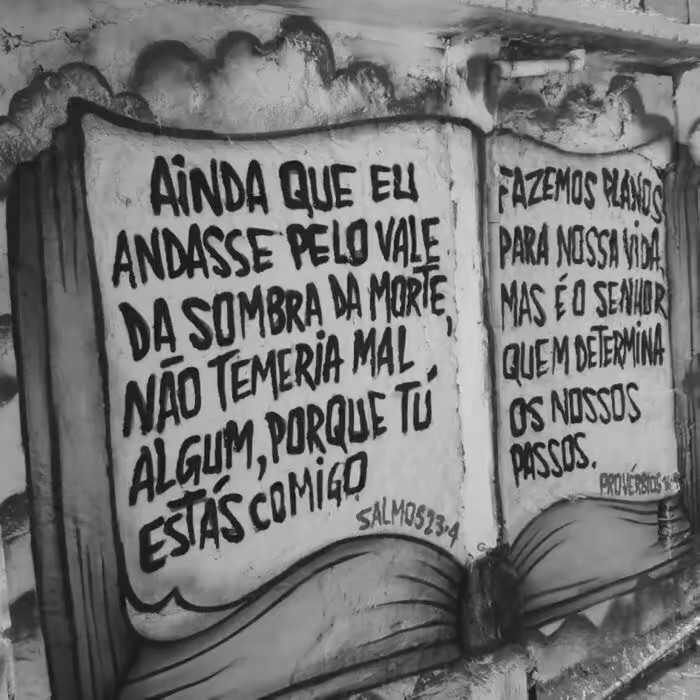 AINDA QUE EU
ANDASSE PELO VALE
DA SOMBRA DA MORTE,
NÃO TEMERIA MAL
ALGUM, PORQUE TÚ
ESTÁS COMIGO
SALMOS 23:4
FAZEMOS PLANOS
PARA NOSSA VIDA,
MAS É O SENHOR
QUEM DETERMINA
OS NOSSOS
PASSOS.
PROVÉRBIOS